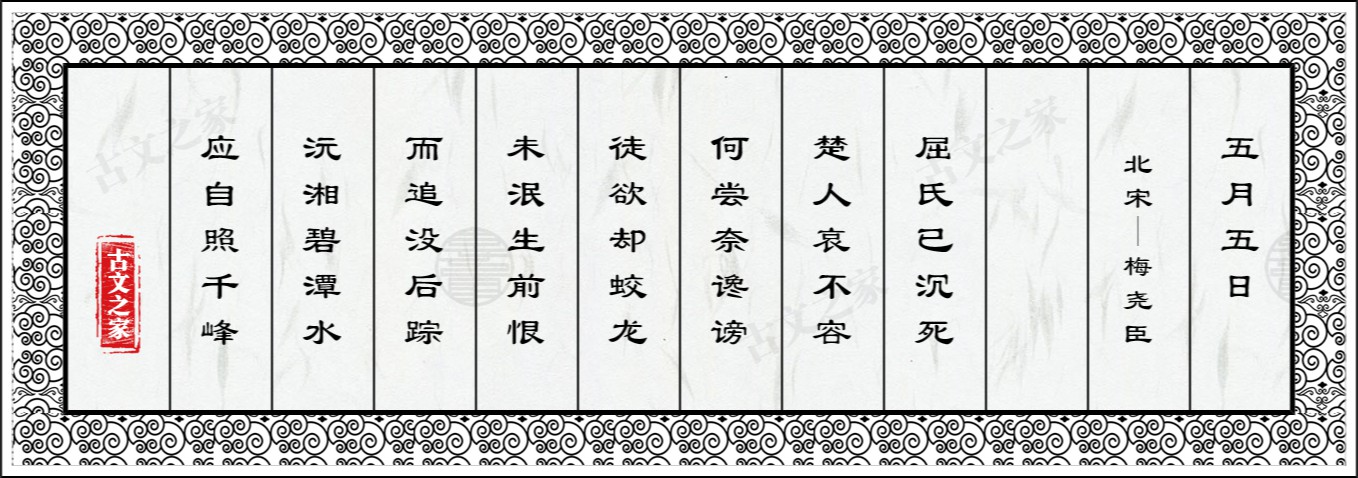 五月五日
北宋—梅尧臣
屈氏已沉死
楚人哀不容
何尝奈谗谤
徒欲却蛟龙
未泯生前恨
而追没后踪
沅湘碧潭水
应自照千峰
古文之家
古文之家
古文之家
古文之家